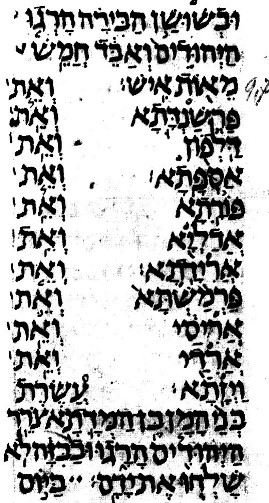 ובשושן הבירה הרגו
היהודים ואבד חמש
מאות איש׃ ואת 9,7
פרשנדתא ואת
דלפון ואת
אספתא׃ ואת
פורתא ואת
אדליא ואת
ארידתא׃ ואת
פרמשתא ואת
אריסי ואת
ארדי ואת
ויזתא׃ עשרת
בני המן בן המדתא צרר
היהודים הרגו ובבזה לא
שלחו את ידם׃ ביום